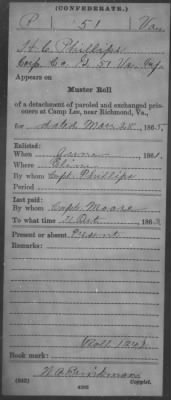 (CONFEDERATE.)
P 51 Va.
H. C. Phillips
Corp. Co. 51 Va. Inf.
Appears on
Muster Roll
of a detachment of paroled and exchanged pris-
oners at Camp Lee, near Richmond, Va.,
for dated Mar 25, 1865.
Enlisted:
When 1861.
Where
By whom Capt. Phillips
Period
Last paid:
By whom Capt. Moore
To what time 31 Oct, 186
Present or absent Present
Remarks:
Book mark:
(642) Copyist.